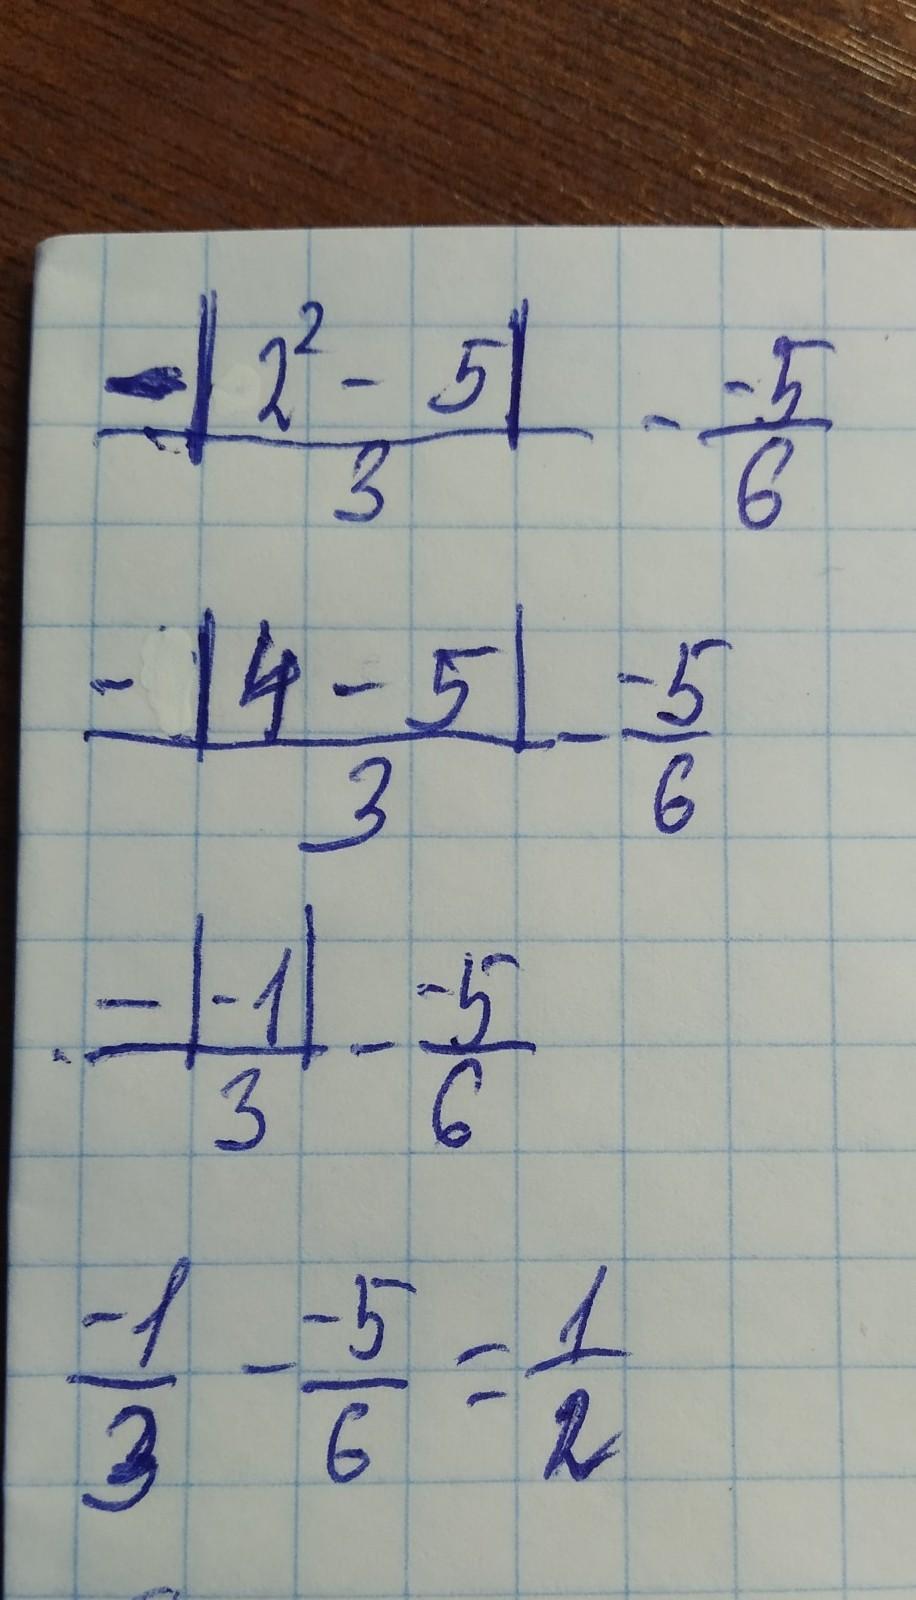 -|2² - 5| / 3 - -5/6
-|4 - 5| / 3 - -5/6
-|-1| / 3 - -5/6
-1/3 - -5/6 = 1/2